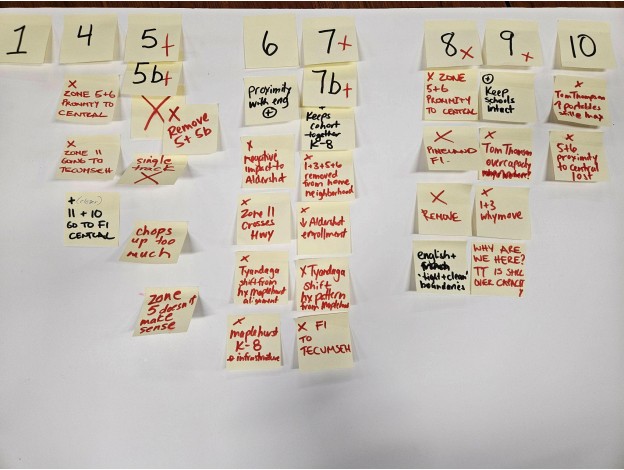 1
4
5+
5b+
6
7+
7b+
8x
9x
10
X ZONE 5+6
PROXIMITY TO
CENTRAL
X
ZONE 11
GOING TO
TECUMSEH
+
11 + 10
GO TO FI
CENTRAL
X
X
Remove
5 + 5b
single
track
X
chops
up too
much
zone
5 doesn't
make
sense
proximity
with eng
+
X
negative
impact to
Aldershot
X
Zone 11
crosses
Hwy
X
Tyandaga
shift from
hx Maplehurst
alignment
X
maplehurst
K-8
infrastructure
+
Keeps
cohort
together
K-8
X
1+3+5+6
removed
from home
neighborhood
X
↓ Aldershot
enrollment
X Tyandaga
shift
hx pattern
from Maplehurst
X FI
TO
TECUMSEH
X ZONE
5+6
PROXIMITY
TO CENTRAL
X
PINELAND
FI-
X
REMOVE
english +
french
"tight + clean"
boundaries
+
Keep
schools
intact
X
Tom Thomson
overcapacity
X
1+3
why move
WHY ARE
WE HERE?
TT IS STILL
OVER CAPACITY
X
Tom Thompson
portables
X
5+6
proximity
to central
lost